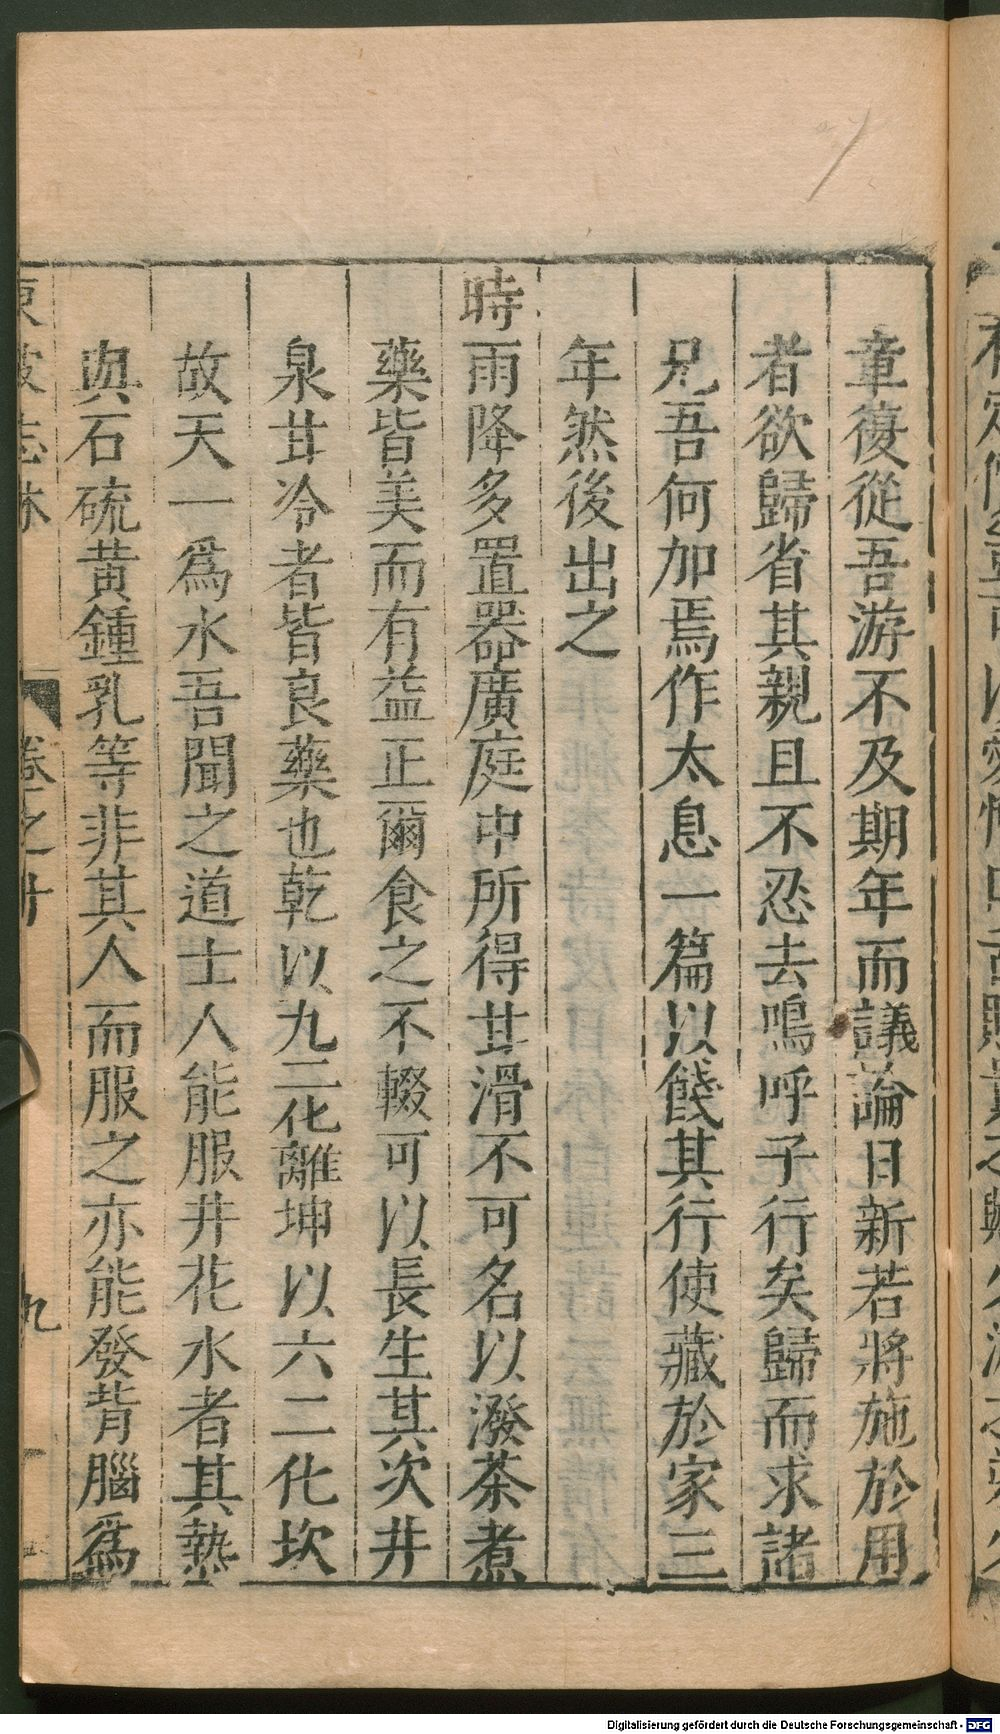 章復從吾游不及期年而議論日新若將施於用
者欲歸省其親且不忍去嗚呼子行矣歸而求諸
兄吾何加焉作太息一篇以餞其行使藏於家三
年然後出之
時雨降多置器廣庭中所得甘滑不可名以潑茶煮
藥皆美而有益正爾食之不輟可以長生其次井
泉甘冷者皆良藥也乾以九二化離坤以六二化坎
故天一爲水吾聞之道士人能服井花水者其熱
與石硫黃鍾乳等非其人而服之亦能發背腦爲
東坡志林
卷之十
九
Digitalisierung gefördert durch die Deutsche Forschungsgemeinschaft - DFG